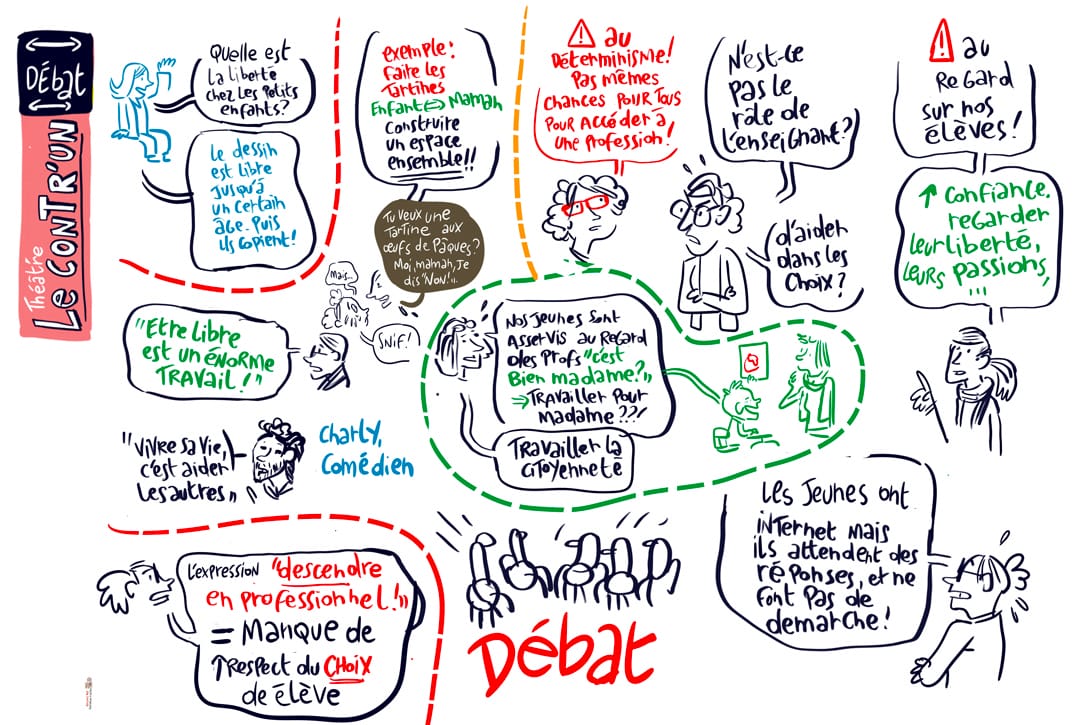 DÉBAt
Théâtre
Le CONTR'UN
Quelle est
la liberté
chez les petits
enfants?
Le dessin
est libre
jusqu'à
un certain
âge. Puis
ils copient!
exemple:
faire les
tartines
Enfant ⇔ Maman
Construire
un espace
ensemble!!
Tu veux une
Tartine aux
œufs de Pâques?
Moi, maman, je
dis "Non!".
Mais...
Snif!
⚠ au
Déterminisme!
Pas mêmes
Chances pour tous
pour accéder à
une profession!
N'est-ce
pas le
rôle de
l'enseignant?
d'aider
dans les
choix?
⚠ au
Regard
sur nos
élèves!
↑ Confiance.
regarder
leur liberté,
leurs passions
!!!
"Etre libre
est un énorme
travail!"
Nos jeunes sont
Asservis au regard
des profs "c'est
Bien madame?"
⇒ Travailler pour
madame??!
Travailler la
citoyenneté
"Vivre sa vie,
c'est aider
les autres"
Charly,
Comédien
L'expression "descendre
en professionnel!"
= Manque de
↑ respect du CHOIX
de élève
Débat
Les jeunes ont
internet mais
ils attendent des
réponses, et ne
font pas de
demarche!